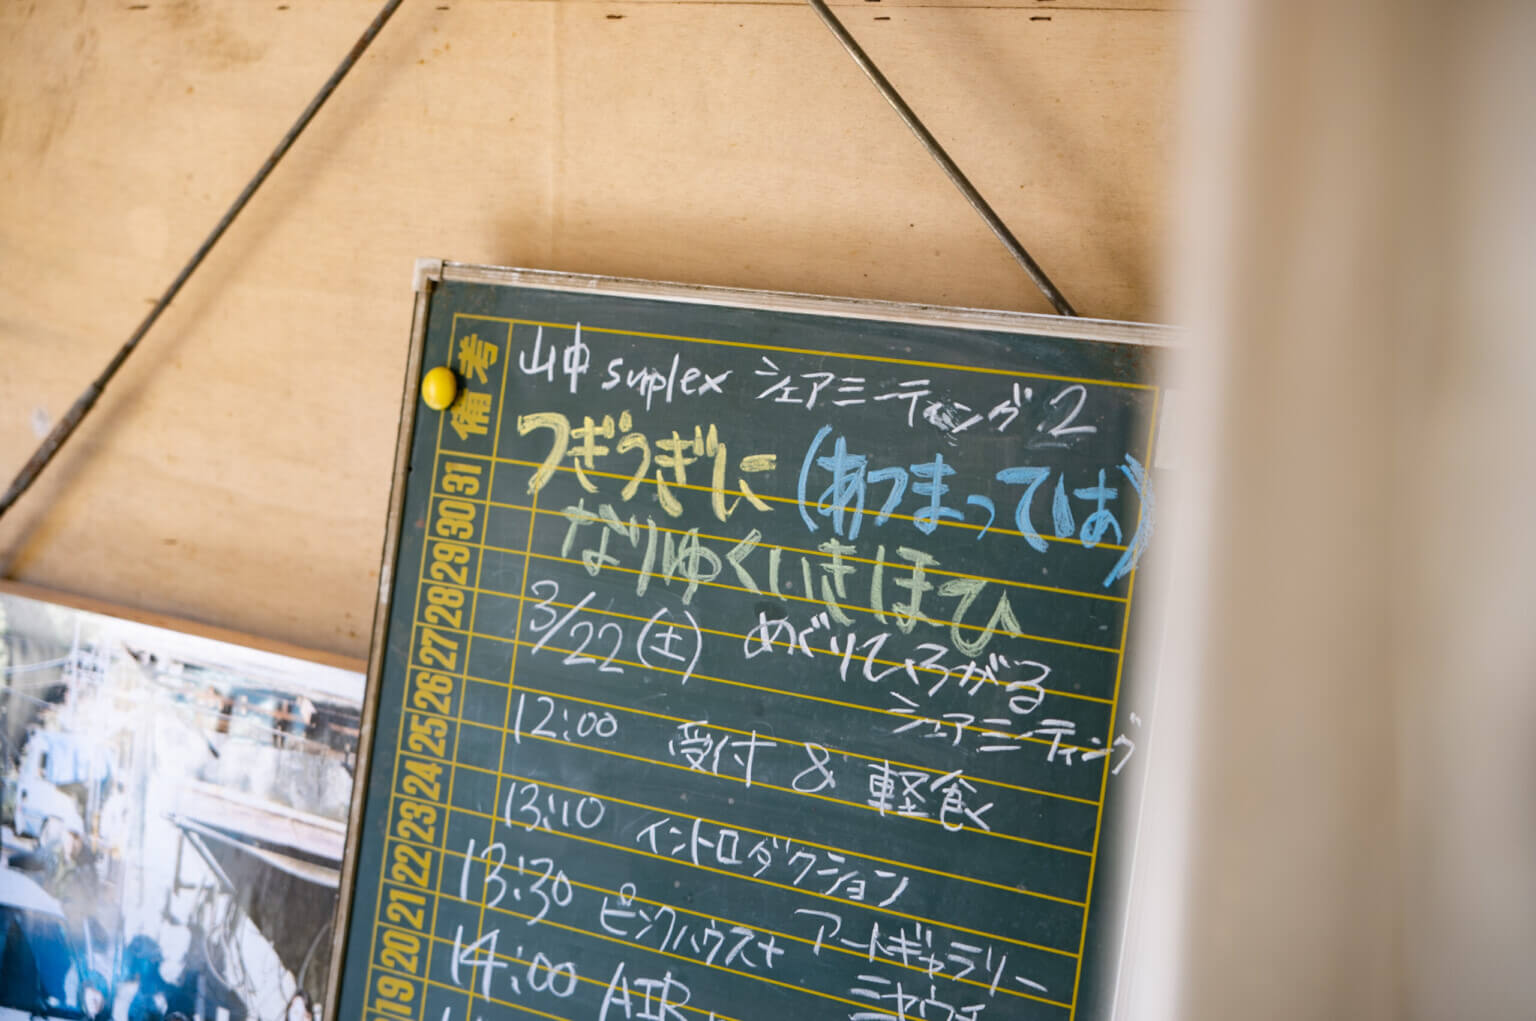 備考
山中 suplex シェアミーティング 2
つぎつぎに (あつまっては)
なりゆくいきほひ
3/22(土) めぐりひろがる
シェアミーティング
12:00 受付 & 軽食
13:10 イントロダクション
13:30 ピンクハウス+ アートギャラリー
ミヤウチ
14:00 AIR
31
30
29
28
27
26
25
24
23
22
21
20
19